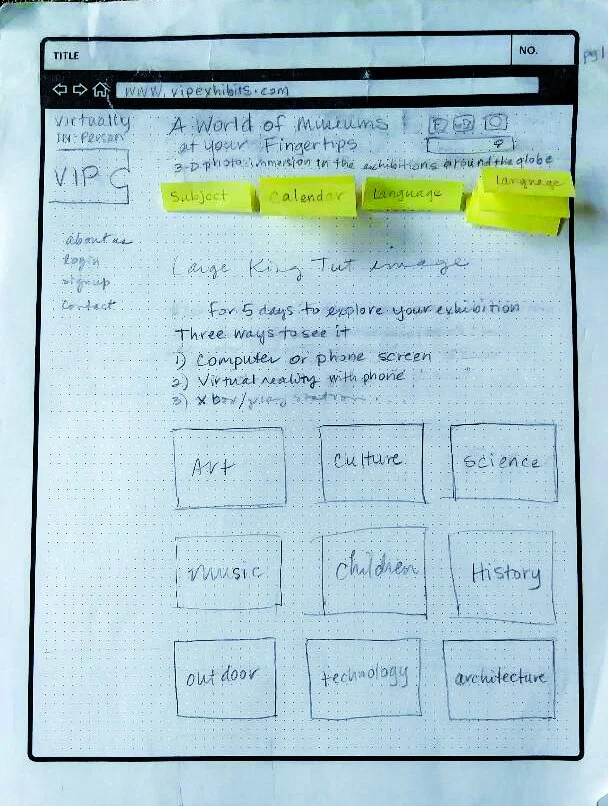 TITLE
NO.
pg1
www.vipexhibits.com
Virtually
IN-Person
VIP
A World of Museums
at your Fingertips
3-D photo immersion in the exhibitions around the globe
Subject
Calendar
Language
Language
about us
login
signup
contact
Large King Tut image
for 5 days to explore your exhibition
Three ways to see it
1) Computer or phone screen
2) Virtual reality with phone
3) X box/play station
Art
Culture
science
music
Children
History
outdoor
technology
architecture